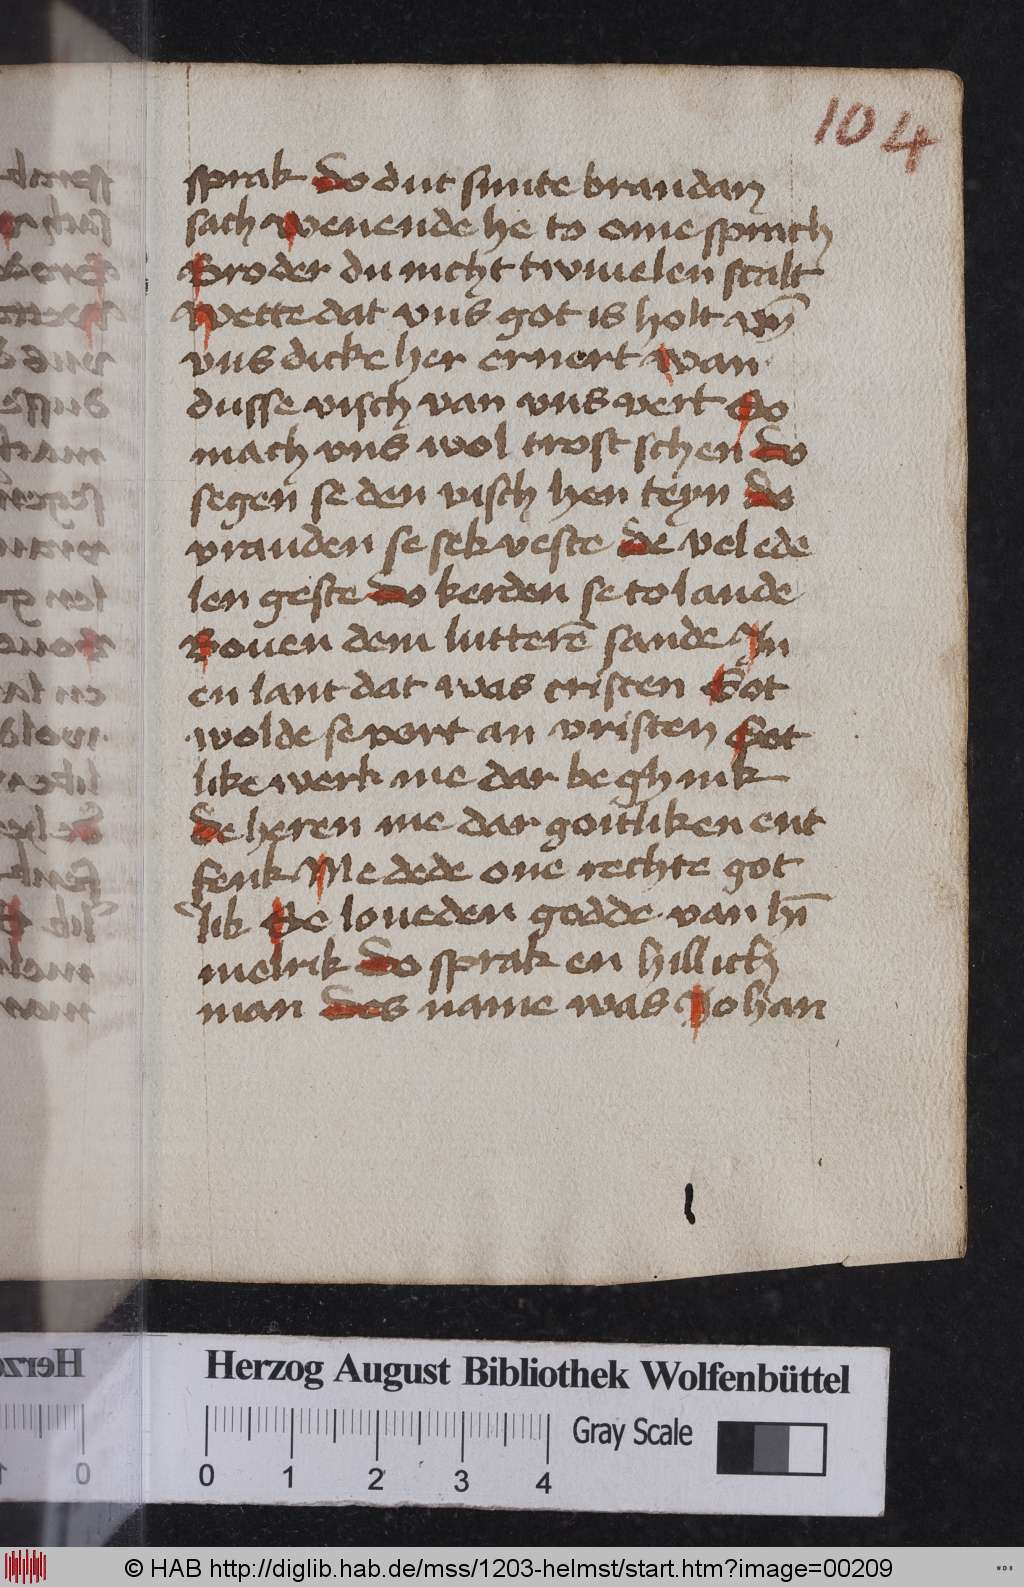 104
sprak do dut sunte brandan
sach wenende he to ome sprach
Broder du nicht twiuelen scalt
Wette dat vns got is holt vn̄
vns dicke her ernert wan
dusse visch van vns vert So
mach vns wol trost schen do
segen se den visch hen teyn do
vrauden se sek veste de vel ede
len geste do kerden se to lande
Bouen dem lutterē sande In
en lant dat was cristen Got
wolde se vort an vristen Got
like werk me dar beghink
de heren me dar goitliken ent
fenk Me dede one rechte got
lik Se loueden godde van hī
melrik do sprak en hillich
man des name was Johan
Herzog August Bibliothek Wolfenbüttel
Gray Scale
0 1 2 3 4
© HAB http://diglib.hab.de/mss/1203-helmst/start.htm?image=00209